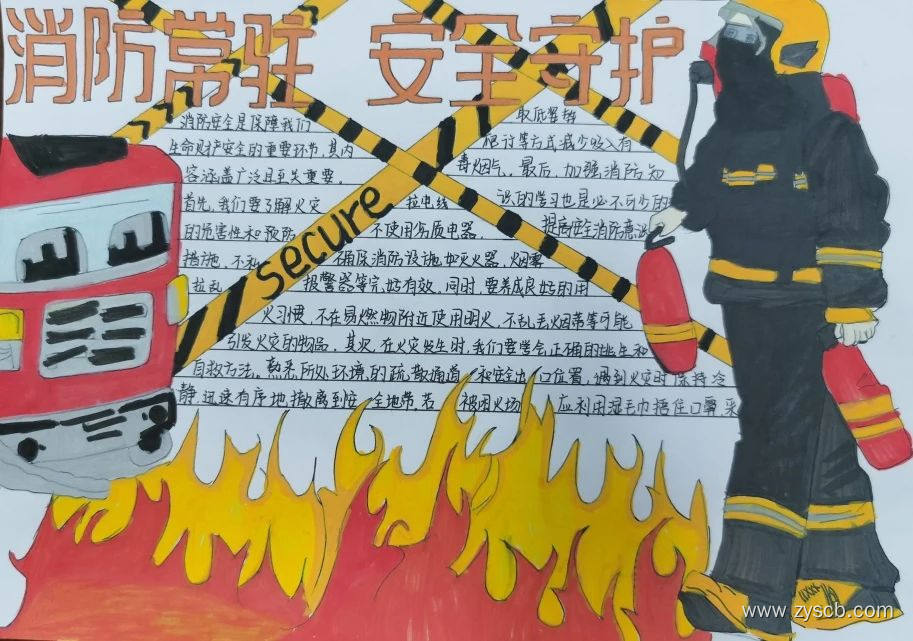 消防常驻 安全守护
消防安全是保障我们
生命财产安全的重要环节,其内
容涵盖广泛且至关重要。
首先,我们要了解火灾
的伤害性和预防
措施,不私
拉乱
拉电线
不使用劣质电器,
确保消防设施如灭火器,烟雾
报警器等完好有效。同时,要养成良好的用
火习惯,不在易燃物附近使用明火,不乱丢烟蒂等可能
引发火灾的物品。其次,在火灾发生时,我们要学会正确的逃生和
自救方法。熟悉所处环境的疏散通道和安全出口位置,遇到火灾时保持冷
静,迅速有序地撤离到安全地带。若被困火场应利用湿毛巾捂住口鼻采
取低姿势
匍匐等方式减少吸入有
毒烟气。最后,加强消防知
识的学习也是必不可少的
提高安全消防意识
secure
www.zyscb.com